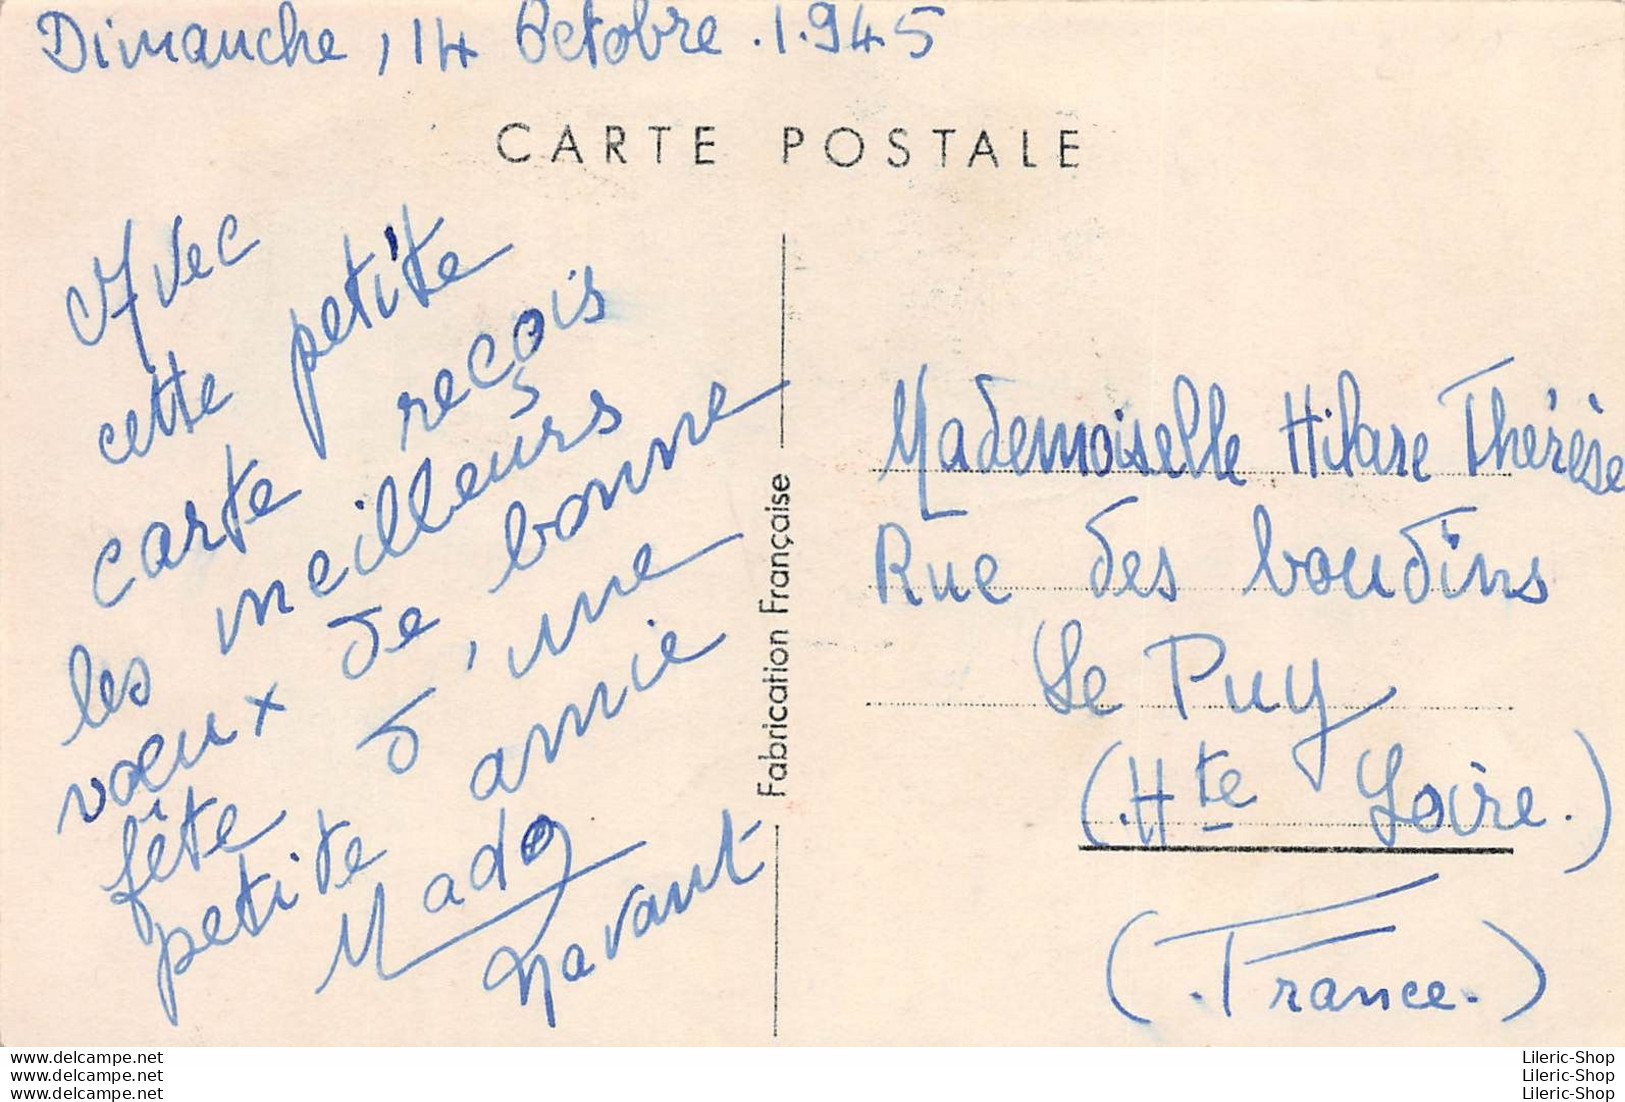 Dimanche, 14 Octobre .1.945
CARTE POSTALE
Avec
cette petite
carte reçois
les meilleurs
vœux de bonne
fête d'une
petite amie
Mado
Navant
Fabrication Française
Mademoiselle Hilare Thérèse
Rue des boudins
Le Puy
(.Hte Loire.)
(.France.)
www.delcampe.net
www.delcampe.net
www.delcampe.net
Lileric-Shop
Lileric-Shop
Lileric-Shop